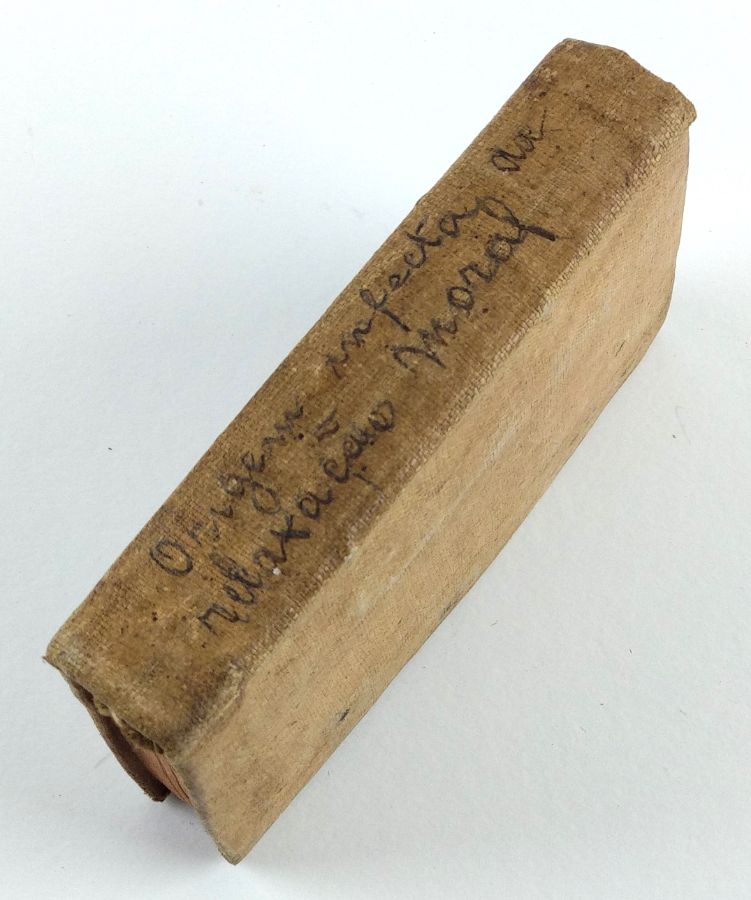 Origem infecta da
relaxação Moral